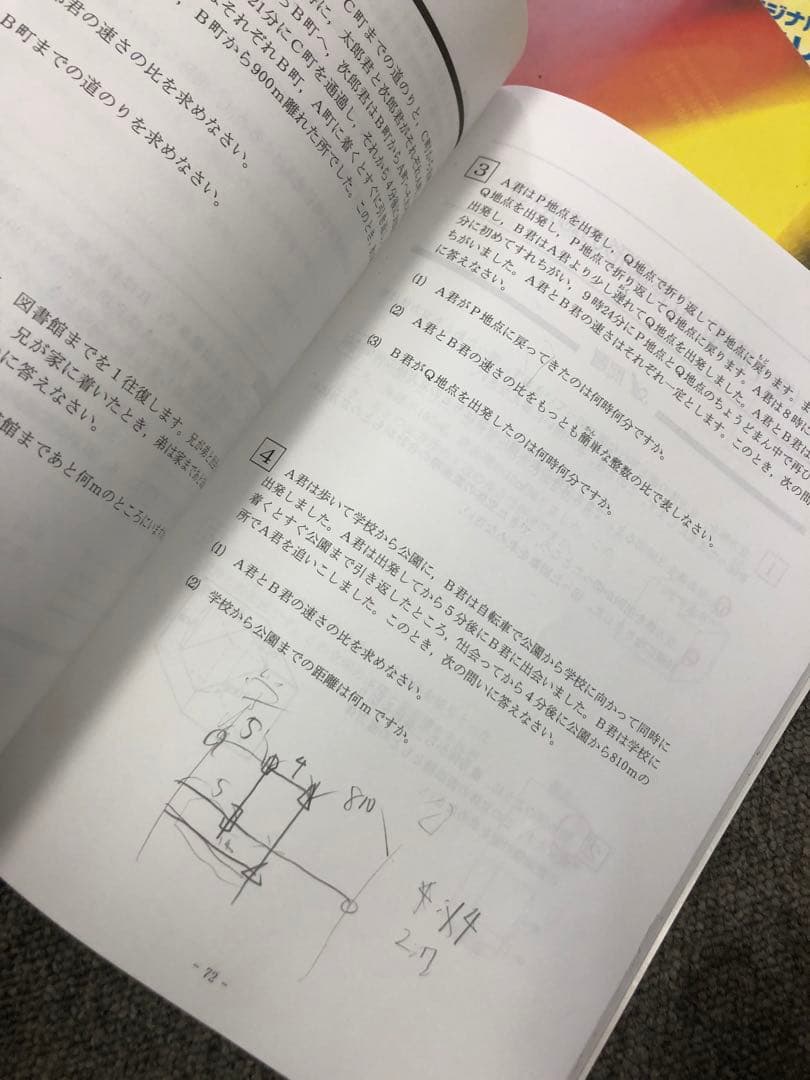 C町までの道のりと,C町から
に,太郎君と次郎君がそれぞれ
B町へ,次郎君はB町からA町へ
21分にC町を通過し,それから4分後に
それぞれB町,A町に着くとすぐに引き
B町から900m離れた所でした。このとき,
君の速さの比を求めなさい。
B町までの道のりを求めなさい。
図書館までを1往復します。兄が弟と
兄が家に着いたとき,弟は家まで
に答えなさい。
館まであと何mのところにいま
3
A君はP地点を出発し,Q地点で折り返してP地点に戻ります。ま
Q地点を出発し,P地点で折り返してQ地点に戻ります。A君は8時に
出発し,B君はA君より少し遅れてQ地点を出発しました。A君とB君は
分に初めてすれちがい,9時24分にP地点とQ地点のちょうどまん中で再び
ちがいました。A君とB君の速さはそれぞれ一定とします。このとき,次の問い
に答えなさい。
(1) A君がP地点に戻ってきたのは何時何分ですか。
(2) A君とB君の速さの比をもっとも簡単な整数の比で表しなさい。
(3) B君がQ地点を出発したのは何時何分ですか。
4
A君は歩いて学校から公園に,B君は自転車で公園から学校に向かって同時に
出発しました。A君は出発してから5分後にB君に出会いました。B君は学校に
着くとすぐ公園まで引き返したところ,出会ってから4分後に公園から810mの
所でA君を追いこしました。このとき,次の問いに答えなさい。
(1) A君とB君の速さの比を求めなさい。
(2) 学校から公園までの距離は何mですか。
5
4
810
5
4
2:7
- 72 -